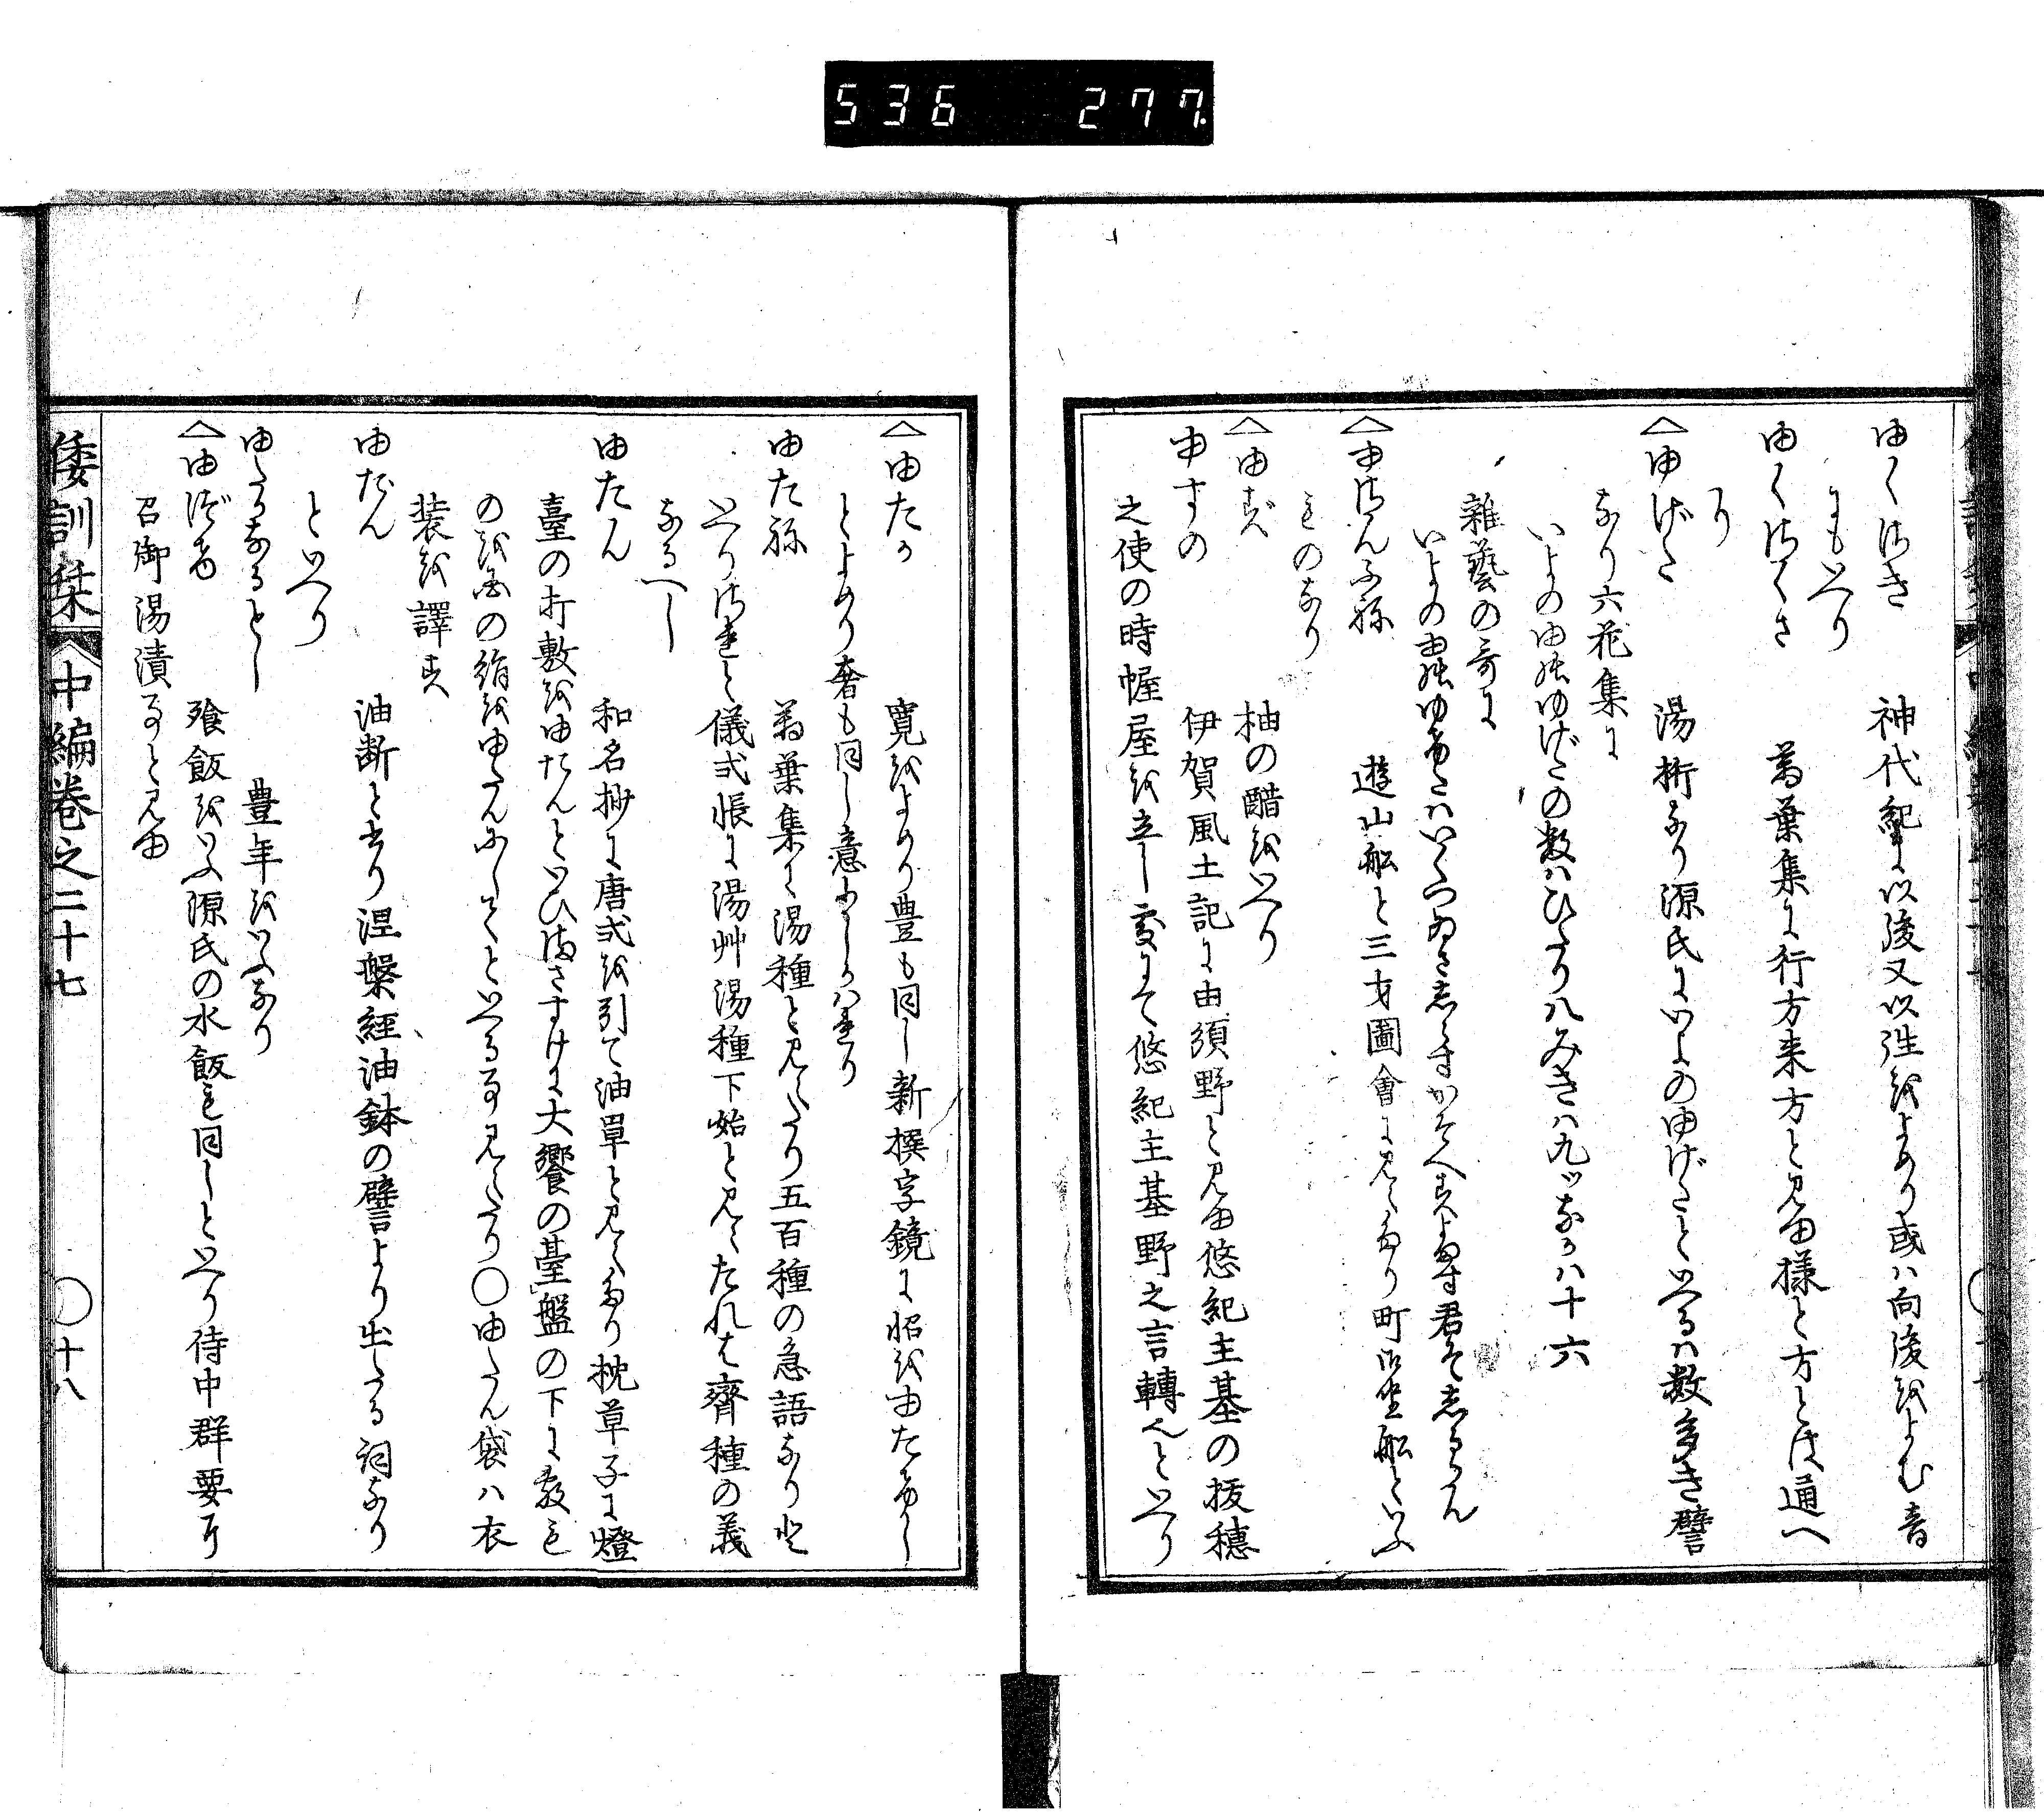 536 277
ゆくさき 神代紀に以後又以往をよめり或ハ向後をよむ音
にもいへり
ゆくさくさ 萬葉集に行方来方と見ゆ様と方とは通へ
り
△ゆげた 湯桁なり源氏にいよのゆげたといへるハ数多き譬
なり六花集に
いよのゆのゆげたの数ハひだり八みぎハ九ツなかハ十六
雑藝の哥に
いよのゆのゆげたハいくつゐさしらずかぞへずよまず君ぞしるらん
△ゆさんぶね 遊山船と三才圖會に見えたり町御坐船といふ
ものなり
△ゆず 柚の醋をいへり
ゆすの 伊賀風土記に由須野と見ゆ悠紀主基の抜穂
之使の時幄屋を立し處にて悠紀主基野之言轉也といへり
△ゆたか 寛をよめり豊も同し新撰字鏡に昭をゆたけし
とよめり奢も同し意よりうつれり
ゆた祢 萬葉集に湯種と見えたり五百種の急語なりと
いへりされと儀式帳に湯艸湯種下始と見えたれは齊種の義
なるへし
ゆたん 和名抄に唐式を引て油單と見えたり枕草子に燈
臺の打敷をゆたんといひまさすけに大饗の臺盤の下に敷も
のを色の絹をゆたんにしてといへる事見えたり〇ゆたん袋ハ衣
装を譯す
ゆだん 油断と書り涅槃経油鉢の譬より出たる詞なり
といへり
ゆたなるとし 豊年をいふなり
△ゆづけ 飧飯をいふ源氏の水飯も同しといへり侍中群要ニ
召御湯漬事と見ゆ
倭訓栞 中編巻之二十七 〇十八